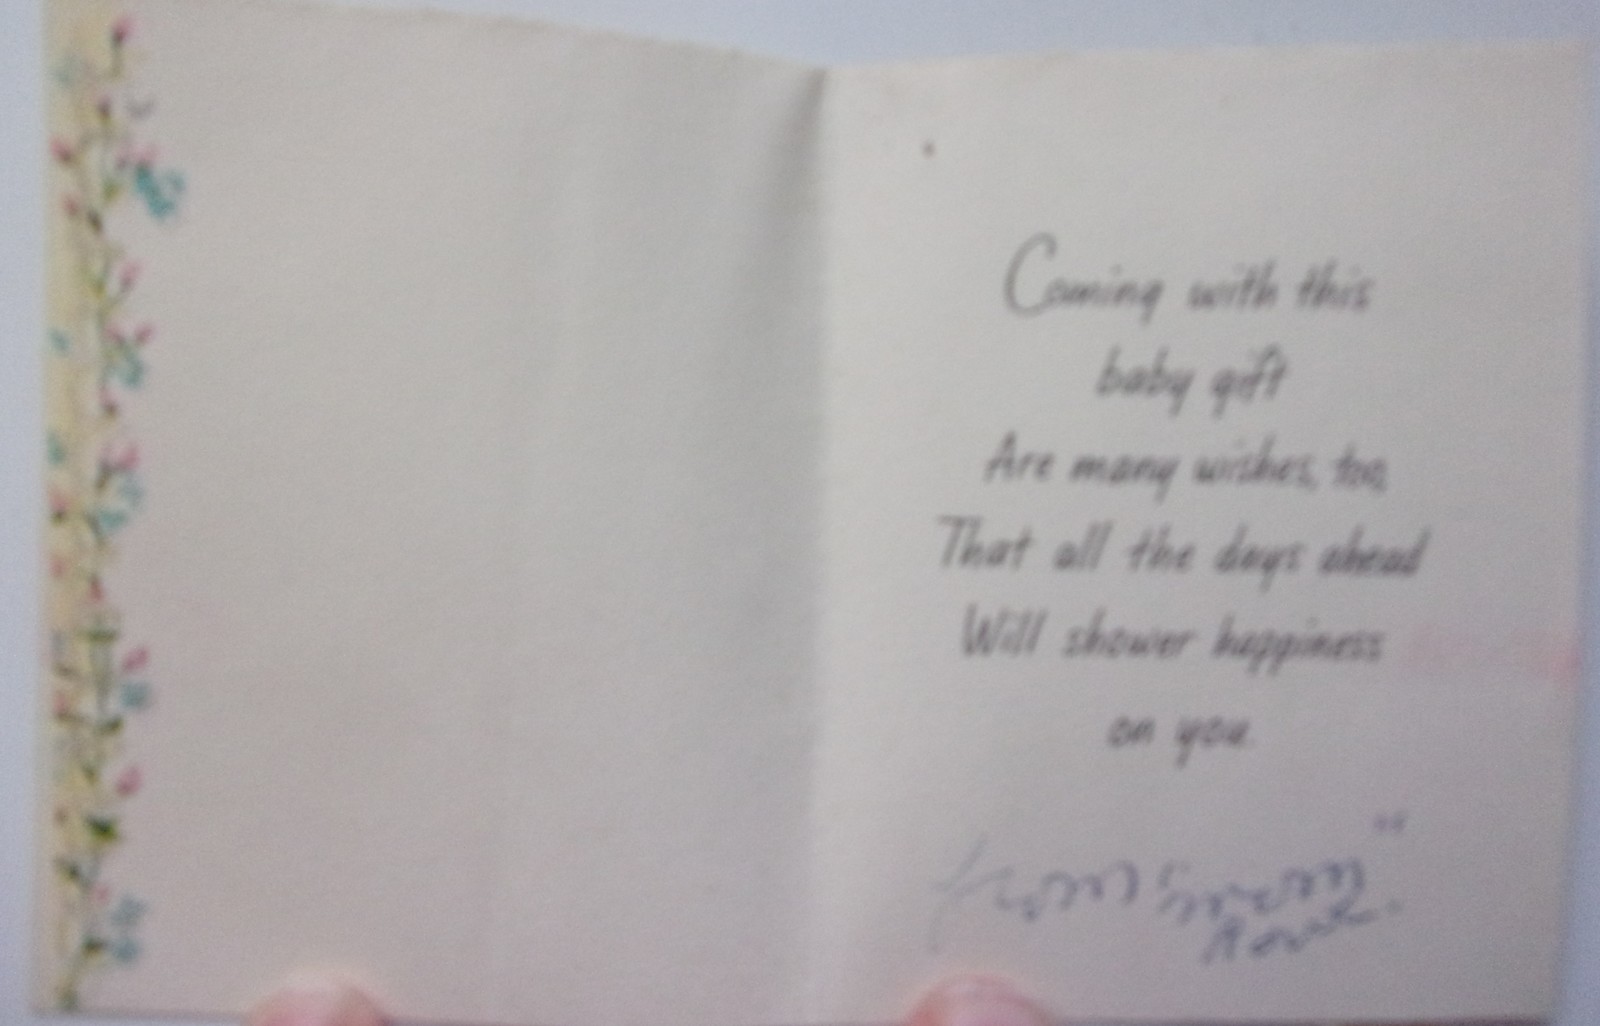 Coming with this
baby gift
Are many wishes, too,
That all the days ahead
Will shower happiness
on you.
from "mom"